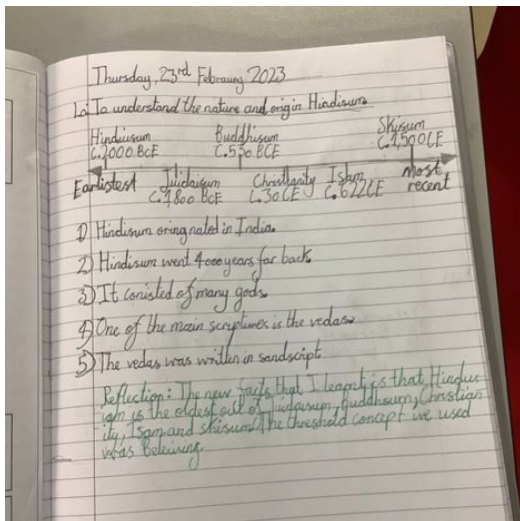 Thursday, 23rd Febraury 2023
Lo: To understand the nature and origin Hindisum.
Hindiusum Buddhisum Skisum
C.2000 BCE C.530 BCE C.1,500CE
Earlistest Juidaisum Christianity Islam Most
C.1800 BCE C.30CE C.622CE recent
1) Hindisum oringnated in India.
2) Hindisum went 4000 years far back
3) It conisted of many gods.
4) One of the main scriptures is the vedas.
5) The vedas was written in sandscript
Reflection: The new facts that I learnt is that Hindui
ism is the oldest out of Juidaisum, Buddhsum, Christian
ity, Isam and skisum. The threshold concept we used
was Beleiving.